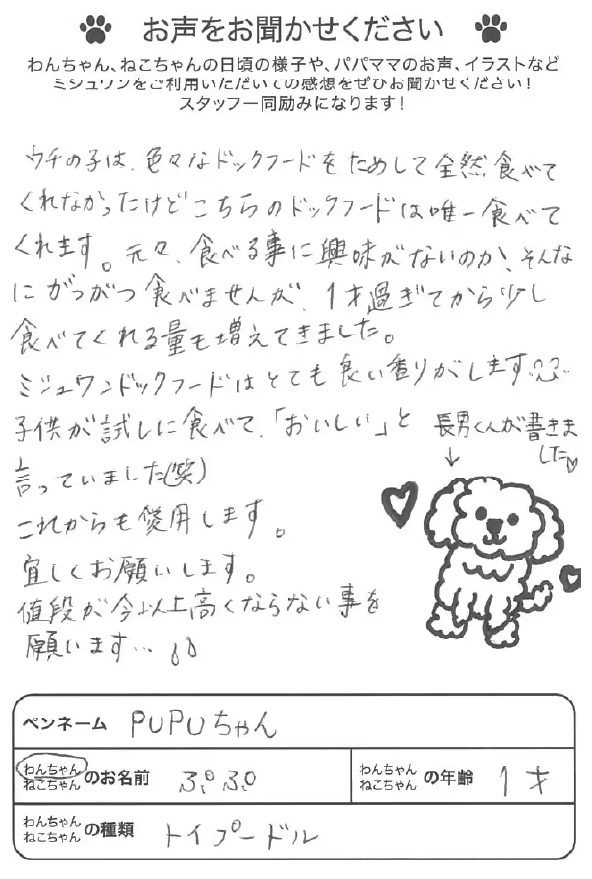 お声をお聞かせください
わんちゃん、ねこちゃんの日頃の様子や、パパママのお声、イラストなど
ミシュワンをご利用いただいての感想をぜひお聞かせください！
スタッフ一同励みになります！
ウチの子は、色々なドックフードをためして全然食べて
くれなかったけどこちらのドックフードは唯一食べて
くれます。元々、食べる事に興味がないのか、そんな
にがつがつ食べませんが、1才過ぎてから少し
食べてくれる量も増えてきました。
ミシュワンドックフードはとても良い香りがします
子供が試しに食べて、「おいしい」と
言っていました(笑)
長男くんが書きま
した♡
↓
これからも愛用します。
宜しくお願いします。
値段が今以上高くならない事を
願います…
ペンネーム PUPUちゃん
わんちゃん
ねこちゃん のお名前 ぷぷ
わんちゃん
ねこちゃん の年齢 1才
わんちゃん
ねこちゃん の種類 トイプードル